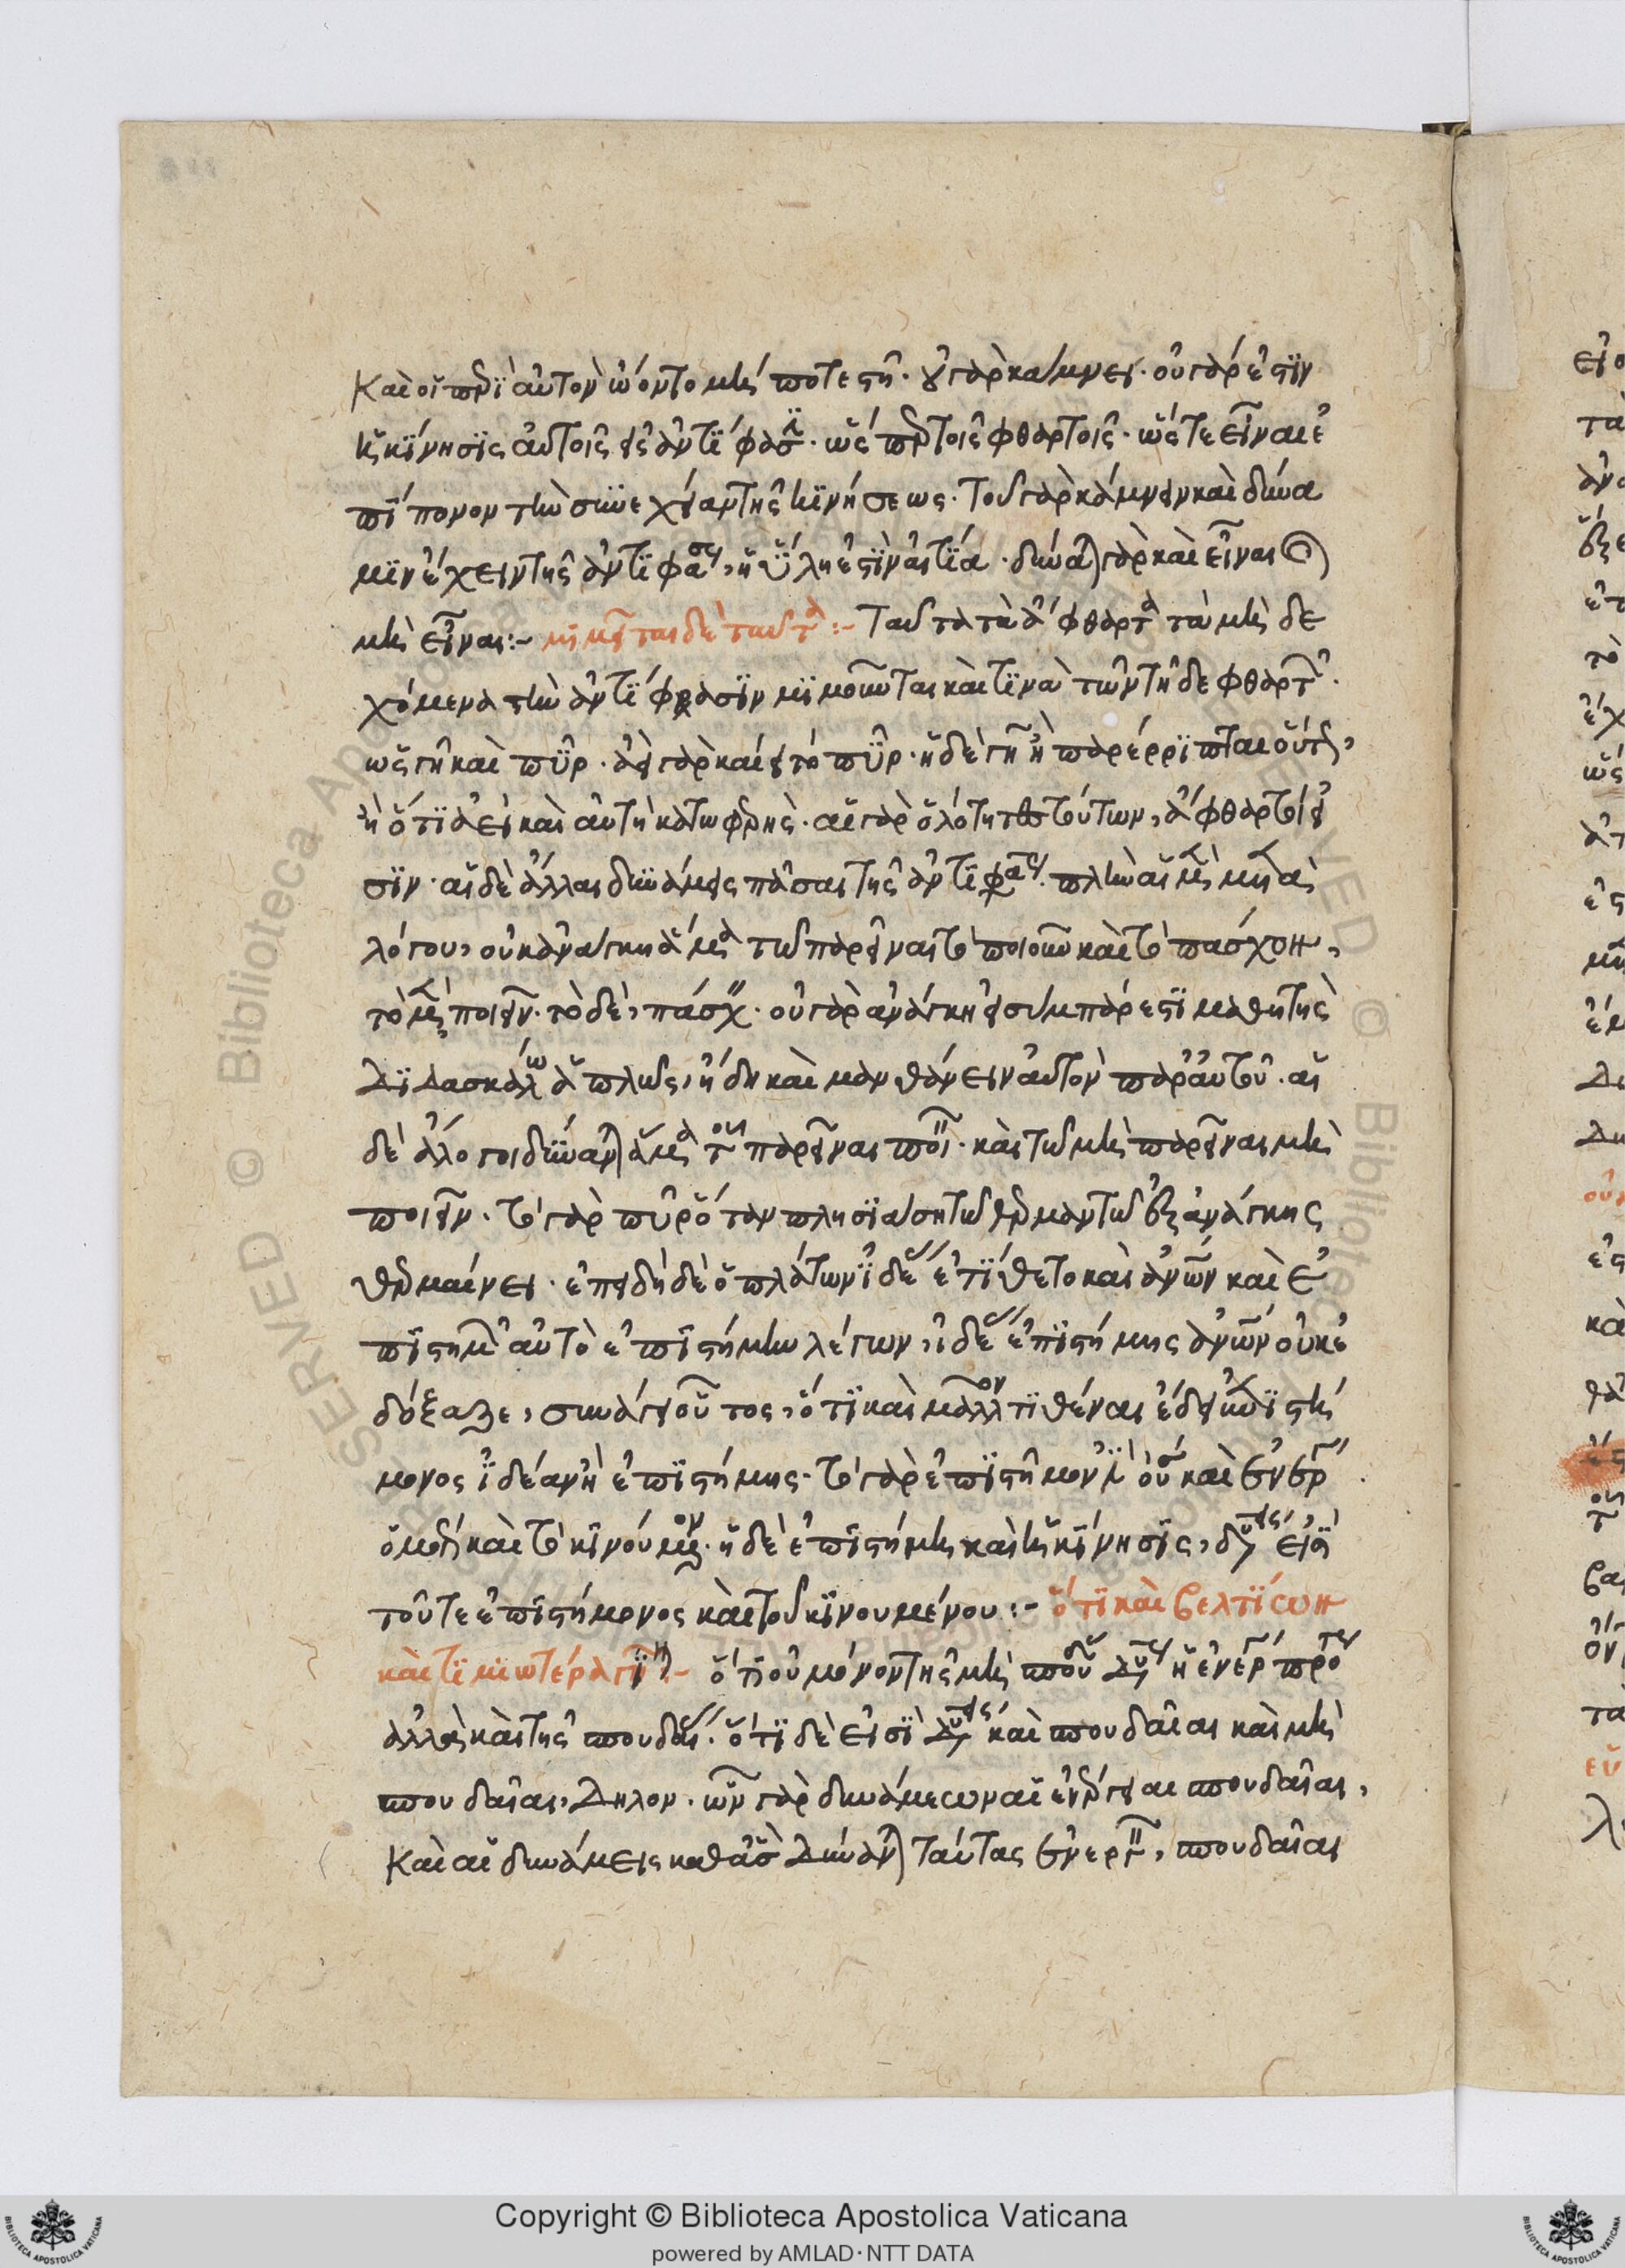 Καὶ οἱ περὶ αὐτὸν ὤοντο μή ποτε στῇ· οὐ γὰρ κάμνει· οὐ γάρ ἐστιν
ἡ κίνησις αὐτοῖς ἐξ ἀντιφάσ ὡς περ τοῖς φθαρτοῖς· ὥστε εἶναι ἐ
πίπονον τὴν συνέχειαν τῆς κινήσεως· τοῦ γὰρ κάμνειν καὶ δύνα
μιν ἔχειν τῆς ἀντιφάσεως, ἡ ὕλη ἐστὶν αἰτία· δύναται γὰρ καὶ εἶναι καὶ
μὴ εἶναι:- μιμεῖται δὲ ταῦτα:- Ταῦτα τὰ ἄφθαρτα τὰ μὴ δε
χόμενα τὴν ἀντίφασιν μιμοῦνται καὶ τινὰ τῶν τῇδε φθαρτ
ὡς γῆ καὶ πῦρ· ἀεὶ γὰρ καίει τὸ πῦρ· ἡ δὲ γῆ ἢ παρέρριπται οὕτως,
ἢ ὅτι ἀεὶ καὶ αὐτὴ κατωφερής· αἱ γὰρ ὁλότητες τούτων, ἄφθαρτοί εἰ
σιν· αἱ δὲ ἄλλαι δυνάμεις πᾶσαι τῆς ἀντιφάσεως· πλὴν αἱ μὲν μετὰ
λόγου, οὐκ ἀνάγκη ἅμα τῷ παρεῖναι τὸ ποιοῦν καὶ τὸ πάσχον,
τὸ μὲν ποιεῖν· τὸ δὲ, πάσχειν· οὐ γὰρ ἀνάγκη εἰ συμπάρεστι μαθητὴς
διδασκάλω ἁπλῶς, ἤδη καὶ μανθάνειν αὐτὸν παρ' αὐτοῦ· αἱ
δὲ ἄλογοι δύνανται ἅμα τοῦ παρεῖναι ποι· καὶ τῷ μὴ παρεῖναι μὴ
ποιεῖν· τὸ γὰρ πῦρ ὅταν πλησιάσῃ τῷ θερμαντῷ ἐξ ἀνάγκης
θερμαίνει· ἐπειδὴ δὲ ὁ πλάτων ἰδέας ἐτίθετο καὶ ἀνῶν καὶ ἐ
πιστημ αὐτὸ ἐπιστήμην λέγων, ἰδέας ἐπιστήμης ἀνῶν οὐκ ἐ
δόξαζε, συνάγει οὗτος, ὅτι καὶ μᾶλλον τιθέναι ἔδει ἐπιστή
μονος ἰδέαν ἢ ἐπιστήμης· τὸ γὰρ ἐπιστῆμον καὶ ἐνεργ
ὁμοίως καὶ τὸ κινούμενον· ἡ δὲ ἐπιστήμη καὶ ἡ κίνησις, δυνάμεις εἰσὶ
τοῦ τε ἐπιστήμονος καὶ τοῦ κινουμένου:- ὅτι καὶ βελτίων
καὶ τιμιωτέρα :- ὅτι οὐ μόνον τῆς μὴ σπουδ δυνάμεως ἡ ἐνέργ προτ
ἀλλὰ καὶ τῆς σπουδαίας· ὅτι δὲ εἰσὶ δυνάμεις καὶ σπουδαῖαι καὶ μὴ
σπουδαῖαι, δῆλον· ὧν γὰρ δυνάμεων αἱ ἐνέργειαι σπουδαῖαι,
Καὶ αἱ δυνάμεις καθ' ἃς δύνανται ταύτας ἐνεργεῖν, σπουδαῖαι